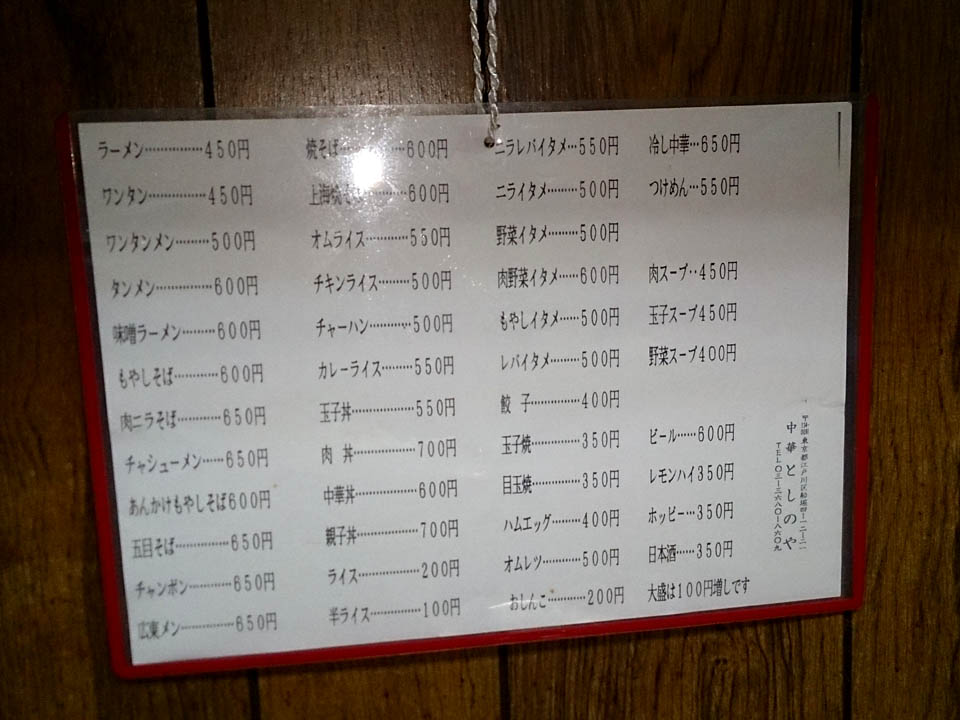 ラーメン……………450円
ワンタン…………450円
ワンタンメン………500円
タンメン……………600円
味噌ラーメン………600円
もやしそば…………600円
肉ニラそば…………650円
チャシューメン……650円
あんかけもやしそば600円
五目そば……………650円
チャンポン…………650円
広東メン……………650円
焼そば……………600円
上海焼そば………600円
オムライス…………550円
チキンライス………500円
チャーハン…………500円
カレーライス………550円
玉子丼………………550円
肉 丼………………700円
中華丼………………600円
親子丼………………700円
ライス………………200円
半ライス……………100円
ニラレバイタメ…550円
ニライタメ………500円
野菜イタメ………500円
肉野菜イタメ……600円
もやしイタメ……500円
レバイタメ………500円
餃 子……………400円
玉子焼……………350円
目玉焼……………350円
ハムエッグ………400円
オムレツ…………500円
おしんこ…………200円
冷し中華…650円
つけめん…550円
肉スープ‥450円
玉子スープ450円
野菜スープ400円
ビール……600円
レモンハイ350円
ホッピー…350円
日本酒……350円
大盛は100円増しです
東京都江戸川区船堀四ー一二ー二一
中華としのや
TEL〇三ー三六八〇ー八六〇九